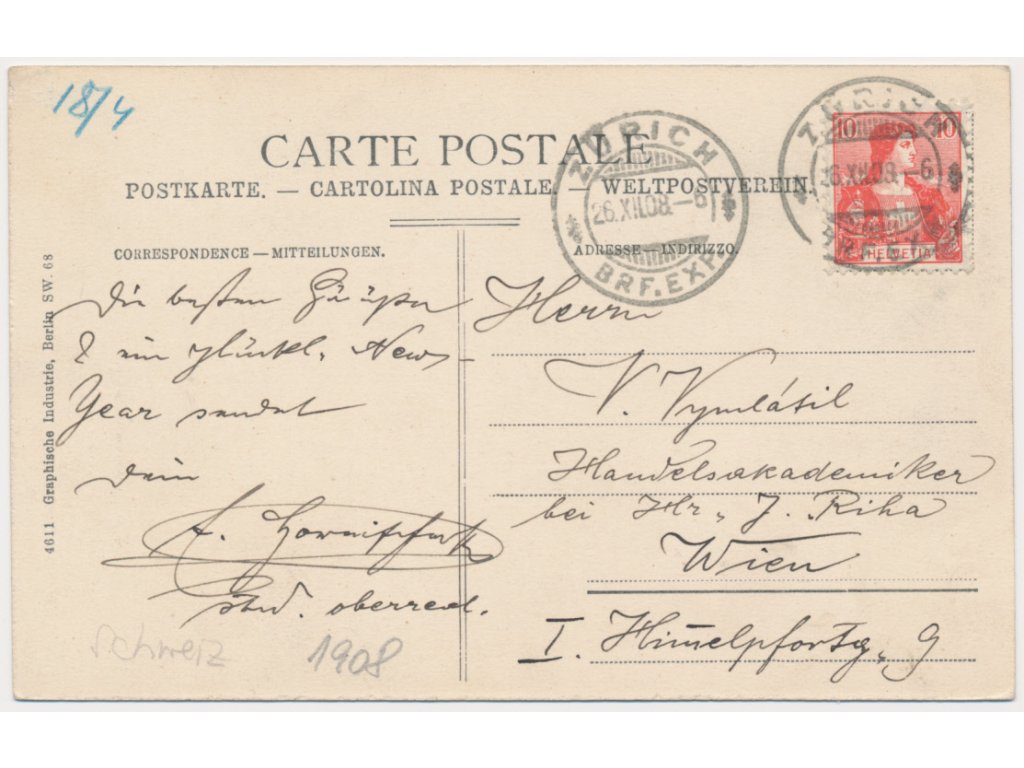 18/4
CARTE POSTALE
POSTKARTE. — CARTOLINA POSTALE. — WELTPOSTVEREIN.
ZÜRICH
26.XII.08.-6
BRF.EXP.
ZÜRICH
26.XII.08.-6
10 10
HELVETIA
CORRESPONDENCE — MITTEILUNGEN.
ADRESSE — INDIRIZZO.
Die besten Grüße
& ein glückl. New-
Year sendet
Dein
stud. oberreal.
Herrn
V. Vymlátil
Handelsakademiker
bei Hr. J. Riha
Wien
I. Himelpfortg. 9
Schweiz
1908
4611 Graphische Industrie, Berlin SW. 68